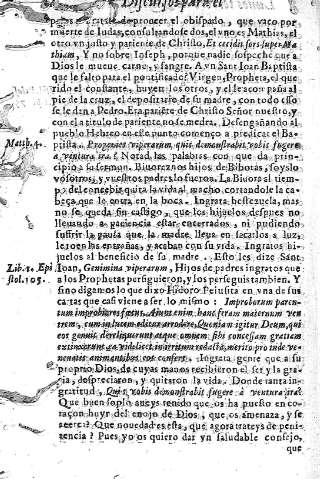 Discursos para el
muerte de Iudas, consultandose dos, el vno es Mathias, el
otro vn justo y pariente de Christo, Et cecidit sors super Ma
thiam, Y no sobre Ioseph, porque nadie sospeche que a
Dios le mueue carne, y sangre. A vn San Iuan Baptista
que le falto para el pontificado? Virgen, Propheta, el que
rido el constante, huyen los otros, y el se acon paña al
pie de la cruz, el depositario de su madre, con todo esso
se le dan a Pedro. Era pariente de Christo Señor nuestro, y
con el a titulo de pariente no se medra. Desengañando al
pueblo Hebreo en este punto començo a predicar el Ba-
ptista. Progenies viperarum, quis demonstrabit vobis fugere
a ventura ira? Notad las palabras con que da prin-
cipio a su sermon. Biuoreznos hijos de Biboras, soys lo
vosotros, y vuestros padres lo fueron. La Biuora al tiem-
po del concebir quita la vida al macho cortandole la ca-
beça que le entra en la boca. Ingrata bestezuela, mas
no se queda sin castigo, que los hijuelos despues no
llenando a paciencia estar encerrados, ni pudiendo
suffrir la pausa que la madre lleua en sacarlos a luz,
le roen las entrañas, y acaban con su vida. Ingratos hi-
juelos al beneficio de su madre. Esto les dize Sant
Matth. 4.
Lib. 1. Epi
stol. 105.
Ioan, Genimina viperarum, Hijos de padres ingratos que
a los Prophetas persiguieron, y los perseguis tambien. Y
sino digamos lo que dixo Isidoro Pelusiota en vna de sus
cartas que casi viene a ser lo mismo: Improborum paren-
tum improbiores fœtus.
eos genuit dereliquerunt atque omnem sibi concessam gratiam
nenatis animantibus eos confert. Ingrata gente que a su
proprio Dios, de cuyas manos recibieron el ser y la gra-
cia, despreciaron, y quitaron la vida. Donde tanta in-
gratitud, Quis vobis demonstrabit fugere à ventura ira?
Que buen soplo aueys tenido que os ha puesto en co-
raçon huyr del enojo de Dios, que os amenaza, y se
acerca? Que nouedad es esta, que agora trateys de peni-
tencia? Pues yo os quiero dar vn saludable consejo,
que